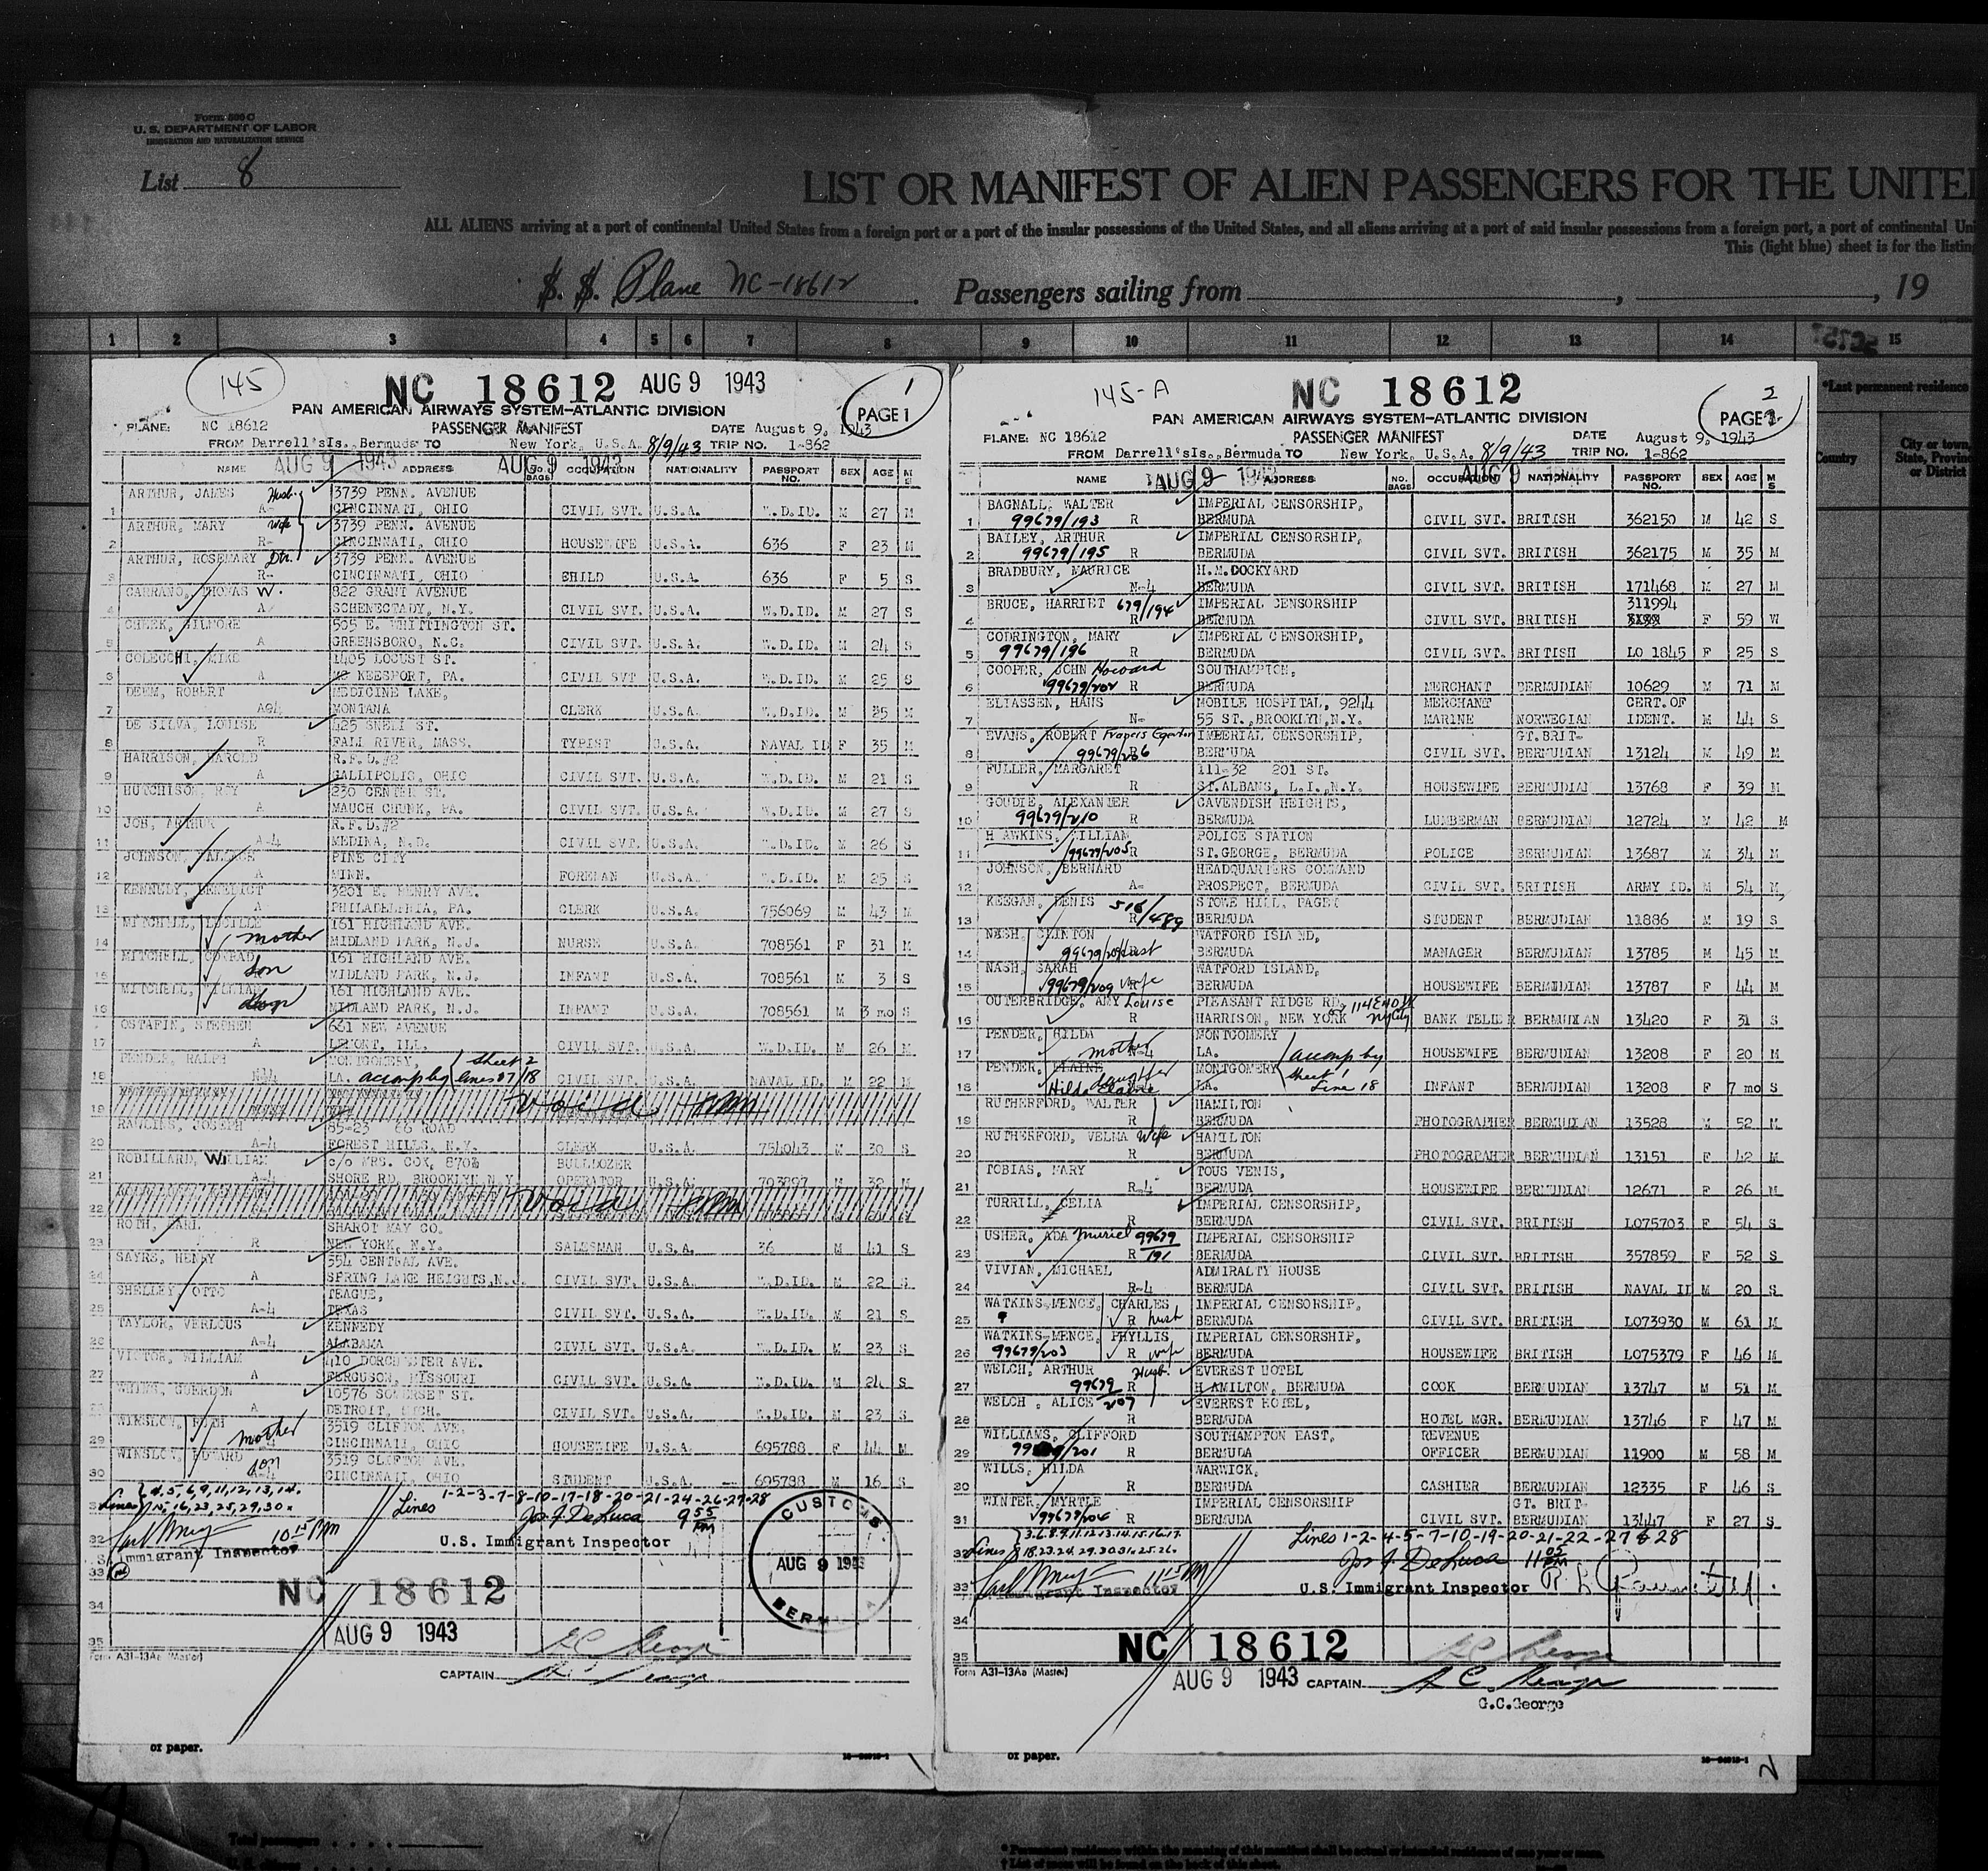 Form 500 C
U. S. DEPARTMENT OF LABOR
IMMIGRATION AND NATURALIZATION SERVICE
List 8
LIST OR MANIFEST OF ALIEN PASSENGERS FOR THE UNITE
ALL ALIENS arriving at a port of continental United States from a foreign port or a port of the insular possessions of the United States, and all aliens arriving at a port of said insular possessions from a foreign port, a port of continental Un
This (light blue) sheet is for the listing
S. S. Plane NC-18612 Passengers sailing from , , 19
1 2 3 4 5 6 7 8 9 10 11 12 13 14 15
*Last permanent residence
Country
City or town,
State, Province
or District
145
NC 18612 AUG 9 1943
1
PAN AMERICAN AIRWAYS SYSTEM-ATLANTIC DIVISION
PAGE 1
PLANE: NC 18612 PASSENGER MANIFEST DATE August 9, 1943
FROM Darrell'sIs., Bermuda TO New York, U.S.A. 8/9/43 TRIP NO. 1-862
AUG 9 1943 AUG 9 1943
NAME ADDRESS NO. BAGS OCCUPATION NATIONALITY PASSPORT NO. SEX AGE M S
ARTHUR, JAMES Husb 3739 PENN. AVENUE
1 A- CINCINNATI, OHIO CIVIL SVT. U.S.A. W.D.ID. M 27 M
ARTHUR, MARY Wife 3739 PENN. AVENUE
2 R- CINCINNATI, OHIO HOUSEWIFE U.S.A. 636 F 23 M
ARTHUR, ROSEMARY Dtr. 3739 PENN. AVENUE
3 R- CINCINNATI, OHIO CHILD U.S.A. 636 F 5 S
CARRANO, THOMAS W. 822 GRANT AVENUE
4 A SCHENECTADY, N.Y. CIVIL SVT. U.S.A. W.D.ID. M 27 S
CHEEK, GILMORE 505 E. WHITTINGTON ST.
5 A GREENSBORO, N.C. CIVIL SVT. U.S.A. W.D.ID. M 24 S
COLECCHI, MIKE 1405 LOCUST ST.
6 A MC KEESPORT, PA. CIVIL SVT U.S.A. W.D.ID. M 25 S
DEEM, ROBERT MEDICINE LAKE,
7 A-4 MONTANA CLERK U.S.A. W.D.ID. M 25 M
DE SILVA, LOUISE 425 SNELL ST.
8 R FALL RIVER, MASS. TYPIST U.S.A. NAVAL ID F 35 M
HARRISON, HAROLD R.F.D.#2
9 A GALLIPOLIS, OHIO CIVIL SVT. U.S.A. W.D.ID. M 21 S
HUTCHISON, ROY 230 CENTER ST.
10 A MAUCH CHUNK, PA. CIVIL SVT. U.S.A. W.D.ID. M 27 S
JOB, ARTHUR R.F.D.#2
11 A-4 MEDINA, N.D. CIVIL SVT. U.S.A. W.D.ID. M 26 S
JOHNSON, WALLACE PINE CITY
12 A MINN. FOREMAN U.S.A. W.D.ID. M 25 S
KENNEDY, BENEDICT 3201 E. HENRY AVE.
13 A PHILADELPHIA, PA. CLERK U.S.A. 756069 M 43 M
MITCHELL, LUCILLE 161 HIGHLAND AVE.
14 mother MIDLAND PARK, N.J. NURSE U.S.A. 708561 F 31 M
MITCHELL, CONRAD 161 HIGHLAND AVE.
15 son MIDLAND PARK, N.J. INFANT U.S.A. 708561 M 3 S
MITCHELL, WILLIAM 161 HIGHLAND AVE.
16 MIDLAND PARK, N.J. INFANT U.S.A. 708561 M 3 mo S
OSTAFIN, STEPHEN 661 NEW AVENUE
17 A LEMONT, ILL. CIVIL SVT. U.S.A. W.D.ID. M 26 M
PENDER, RALPH MONTGOMERY, sheet 2
18 LA. accomp by lines 17/18 CIVIL SVT. U.S.A. NAVAL ID. M 22 M
19 void
RAWLINS, JOSEPH 85-23 66 ROAD
20 A-4 FOREST HILLS, N.Y. CLERK U.S.A. 754043 M 30 S
ROBILLARD, WILLIAM c/o MRS. COX, 870½ BULLDOZER
21 A-4 SHORE RD. BROOKLYN N.Y. OPERATOR U.S.A. 793897 M 32 M
22 void
ROTH, EARL SHAROT MAY CO.
23 R NEW YORK, N.Y. SALESMAN U.S.A. 36 M 41 S
SAYRS, HENRY 554 CENTRAL AVE.
24 A SPRING LAKE HEIGHTS, N.J. CIVIL SVT. U.S.A. W.D.ID. M 22 S
SHELLEY, OTTO TEAGUE,
25 A-4 TEXAS CIVIL SVT. U.S.A. W.D.ID. M 21 S
TAYLOR, VERLOUS KENNEDY
26 A-4 ALABAMA CIVIL SVT. U.S.A. W.D.ID. M 23 S
VICTOR, WILLIAM 410 DORCHESTER AVE.
27 A FERGUSON, MISSOURI CIVIL SVT. U.S.A. W.D.ID. M 24 S
WHITE, GUERDON 10576 SOMERSET ST.
28 A DETROIT, MICH. CIVIL SVT. U.S.A. W.D.ID. M 23 S
WINSLOW, RUTH 3519 CLIFTON AVE.
29 mother CINCINNATI, OHIO HOUSEWIFE U.S.A. 695788 F 44 M
WINSLOW, EDWARD 3519 CLIFTON AVE.
30 son CINCINNATI, OHIO STUDENT U.S.A. 695788 M 16 S
Lines 4, 5, 6, 9, 11, 12, 13, 14, 15, 16, 23, 25, 29, 30. Lines 1-2-3-7-8-10-17-18-20-21-24-26-27-28
10 15 PM Jos. J. DeLuca 9 55 PM
Immigrant Inspector U.S. Immigrant Inspector
CUSTOMS AUG 9 1943 BERMUDA
NC 18612
34
AUG 9 1943
35
Form A31-13Aa (Master)
CAPTAIN
of paper.
145-A
NC 18612
2
PAN AMERICAN AIRWAYS SYSTEM-ATLANTIC DIVISION
PAGE 2
PLANE: NC 18612 PASSENGER MANIFEST DATE August 9, 1943
FROM Darrell'sIs., Bermuda TO New York, U.S.A. 8/9/43 TRIP NO. 1-862
AUG 9 1943 AUG 9 1943
NAME ADDRESS NO. BAGS OCCUPATION NATIONALITY PASSPORT NO. SEX AGE M S
BAGNALL, WALTER IMPERIAL CENSORSHIP,
1 99679/193 R BERMUDA CIVIL SVT. BRITISH 362150 M 42 S
BAILEY, ARTHUR IMPERIAL CENSORSHIP,
2 99679/195 R BERMUDA CIVIL SVT. BRITISH 362175 M 35 M
BRADBURY, MAURICE H.M. DOCKYARD
3 N-4 BERMUDA CIVIL SVT. BRITISH 171468 M 27 M
BRUCE, HARRIET 679/194 IMPERIAL CENSORSHIP 311994
4 R BERMUDA CIVIL SVT. BRITISH F 59 W
CODRINGTON, MARY IMPERIAL CENSORSHIP,
5 99679/196 R BERMUDA CIVIL SVT. BRITISH LO 1845 F 25 S
COOPER, JOHN Howard SOUTHAMPTON,
6 99679/202 R BERMUDA MERCHANT BERMUDIAN 10629 M 71 M
ELIASSEN, HANS MOBILE HOSPITAL, 9244 MERCHANT CERT. OF
7 N- 55 ST., BROOKLYN, N.Y. MARINE NORWEGIAN IDENT. M 44 S
EVANS, ROBERT IMPERIAL CENSORSHIP, GT. BRIT-
8 99679/206 BERMUDA CIVIL SVT. BERMUDIAN 13124 M 49 M
FULLER, MARGARET 111-32 201 ST.
9 R ST. ALBANS, L.I., N.Y. HOUSEWIFE BERMUDIAN 13768 F 39 M
GOUDIE, ALEXANDER CAVENDISH HEIGHTS,
10 99679/210 R BERMUDA LUMBERMAN BERMUDIAN 12724 M 42 M
HAWKINS, WILLIAM POLICE STATION
11 99679/205 R ST. GEORGE, BERMUDA POLICE BERMUDIAN 13687 M 34 M
JOHNSON, BERNARD HEADQUARTERS COMMAND
12 A- PROSPECT, BERMUDA CIVIL SVT. BRITISH ARMY ID. M 54 M
KEEGAN, DENIS 516/489 STOWE HILL, PAGET
13 R BERMUDA STUDENT BERMUDIAN 11886 M 19 S
NASH, CLINTON WATFORD ISLAND,
14 BERMUDA MANAGER BERMUDIAN 13785 M 45 M
NASH, SARAH WATFORD ISLAND,
15 99679/209 wife BERMUDA HOUSEWIFE BERMUDIAN 13787 F 44 M
OUTERBRIDGE, AMY Louise PLEASANT RIDGE RD,
16 R HARRISON, NEW YORK NyCity BANK TELLER BERMUDIAN 13420 F 31 S
PENDER, HILDA MONTGOMERY
17 mother N-4 LA. accomp by HOUSEWIFE BERMUDIAN 13208 F 20 M
PENDER, ELAINE daughter MONTGOMERY sheet 1
18 Hilda Elaine LA. Line 18 INFANT BERMUDIAN 13208 F 7 mo S
RUTHERFORD, WALTER HAMILTON
19 R BERMUDA PHOTOGRAPHER BERMUDIAN 13528 M 52 M
RUTHERFORD, VELMA Wife HAMILTON
20 R BERMUDA PHOTOGRPAHER BERMUDIAN 13151 F 42 M
TOBIAS, MARY TOUS VENIS,
21 R-4 BERMUDA HOUSEWIFE BERMUDIAN 12671 F 26 M
TURRILL, CELIA IMPERIAL CENSORSHIP,
22 R BERMUDA CIVIL SVT. BRITISH LO75703 F 54 S
USHER, ADA Muriel 99679/191 IMPERIAL CENSORSHIP
23 R BERMUDA CIVIL SVT. BRITISH 357859 F 52 S
VIVIAN, MICHAEL ADMIRALTY HOUSE
24 R-4 BERMUDA CIVIL SVT. BRITISH NAVAL ID M 20 S
WATKINS-MENCE, CHARLES IMPERIAL CENSORSHIP,
25 R husb BERMUDA CIVIL SVT. BRITISH LO73930 M 61 M
WATKINS-MENCE, PHYLLIS IMPERIAL CENSORSHIP,
26 99679/203 R wife BERMUDA HOUSEWIFE BRITISH LO75379 F 46 M
WELCH, ARTHUR Husb. EVEREST HOTEL
27 99679/207 R HAMILTON, BERMUDA COOK BERMUDIAN 13747 M 51 M
WELCH, ALICE EVEREST HOTEL,
28 R BERMUDA HOTEL MGR. BERMUDIAN 13746 F 47 M
WILLIAMS, CLIFFORD SOUTHAMPTON EAST, REVENUE
29 /201 R BERMUDA OFFICER BERMUDIAN 11900 M 58 M
WILLS, HILDA WARWICK,
30 R BERMUDA CASHIER BERMUDIAN 12335 F 46 S
WINTER, MYRTLE IMPERIAL CENSORSHIP GT. BRIT-
31 99679/204 R BERMUDA CIVIL SVT. BERMUDIAN 13447 F 27 S
Lines 3.6.8.9.11.12.13.14.15.16.17. 18.23.24.29.30.31.25.26. Lines 1-2-4-5-7-10-19-20-21-22-27 & 28
11 15 PM Jos. J. DeLuca 11 05 PM
Immigrant Inspector U.S. Immigrant Inspector
34
NC 18612
35
Form A31-13Aa (Master)
AUG 9 1943 CAPTAIN
G.C.George
of paper.
2
Total passengers